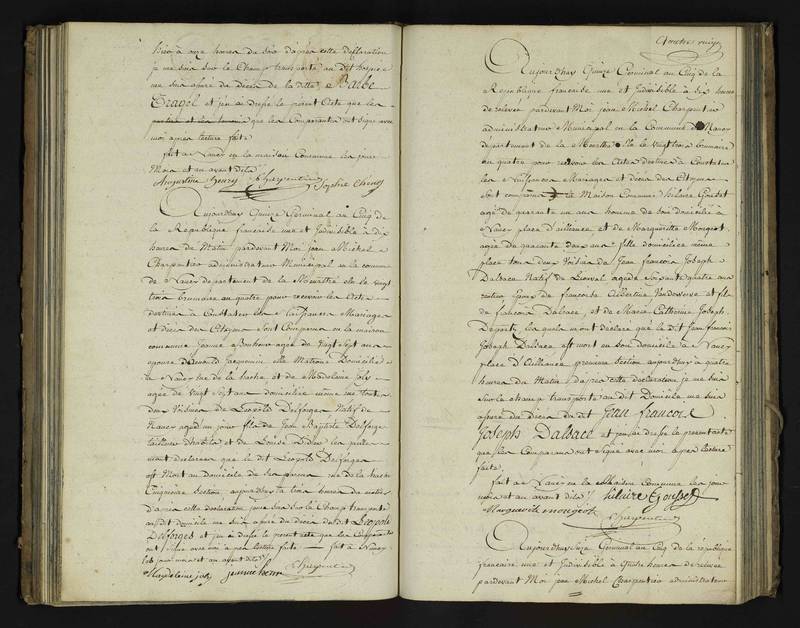 hier à onze heures du soir d'après cette declaration
je me suis sur le Champ transporté au dit hospice
me suis assuré du décès de la ditte Barbe
et j'en ai dressé le présent Acte que les
que les Comparants ont signé avec
moi après lecture faite
fait à Nancy en la maison Commune les jour
Mois et an avant dits
Augustin henry Charpentier Sophie
Aujourdhuy Quinze Germinal au Cinq de
la République francaise une et Indivisible à dix
heures du Matin pardevant Moi jean Michel
Charpentier administrateur Municipal en la commune
de Nancy departement de la Meurthe élu le vingt
trois brumaire an quatre pour recevoir les Actes
destinés à Constater les Naissances Mariages
et décès des Citoyens Sont Comparus en la maison
commune Jeanne agée de vingt Sept ans
epouse de Matrone Domiciliée
à Nancy rue de la hache et de Madelaine Joly
agée de vingt Sept ans domiciliée même rue toutes
deux Voisines de Léopold Desforges Natif de
Nancy agé d'un jour fils de Jean Baptiste Desforges
tailleur d'habits et de Louise les quelles
m'ont declaré que le dit Léopold Desforges
est Mort au domicile de ses parens rue de la hache
Cinquieme Section aujourdhuy à trois heures du matin
d'après cette declaration je me suis sur le Champ transporté
au dit domicile me suis assuré du décès du dit Léopold
Desforges et j'en ai dressé le présent acte que les Comparants
ont signé avec moi après lecture faite fait à Nancy
les jour mois et an avant dits
Magdeleine joly jeanne Charpentier
Aujourdhuy Quinze Germinal au Cinq de la
République francaise une et Indivisible à six heures
de relevée pardevant Moi jean Michel Charpentier
administrateur Municipal en la Commune de Nancy
département de la Meurthe élu le vingt trois brumaire
an quatre pour recevoir les Actes destinés à Constater
les Naissances Mariages et décès des Citoyens
Sont comparus en la Maison Commune hilaire
agé de quarante un ans homme de loi domicilié à
Nancy place d'alliance et de Marguerite Mongeot
agée de quarante deux ans fille domiciliée même
place tous deux Voisins de Jean francois Joseph
Dalsace Natif de agé de Soixante quatre ans
rentier Epoux de francoise Albertine et fils
de francois Dalsace et de Marie Catherine Joseph
les quels m'ont declaré que le dit Jean francois
Joseph Dalsace est mort en son domicile à Nancy
place D'Alliance premiere Section aujourdhuy à quatre
heures du Matin d'après cette declaration je me suis
Sur le champ transporté au dit Domicile me suis
assuré du Décès du dit Jean francois
Joseph Dalsace et j'en ai dressé le présent acte
que les Comparans ont signé avec moi après lecture
faite
fait à Nancy en la Maison Commune les jour
mois et an avant dits hilaire
Marguerite mongeot
Charpentier
Aujourdhuy Seize Germinal au Cinq de la république
francaise une et Indivisible à Quatre heures de relevée
pardevant Moi jean Michel Charpentier administrateur